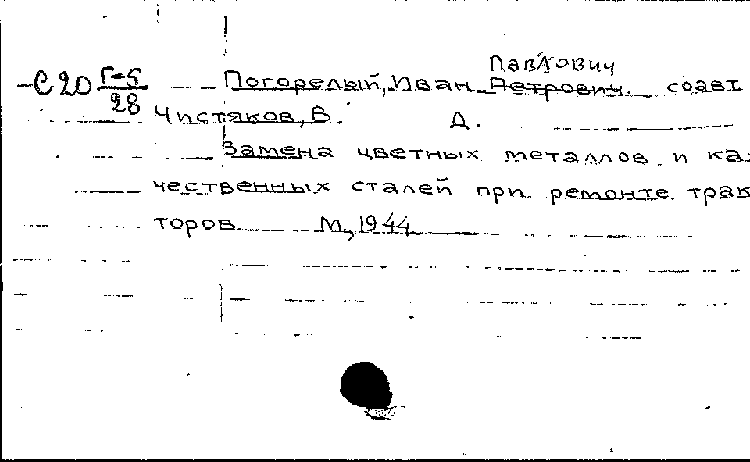 Павлович
С20 Г-5/28 Погорелый, Иван Петрович. соавт
Чистяков, В. Д.
Замена цветных металлов и ка-
чественных сталей при ремонте трак
торов М, 1944